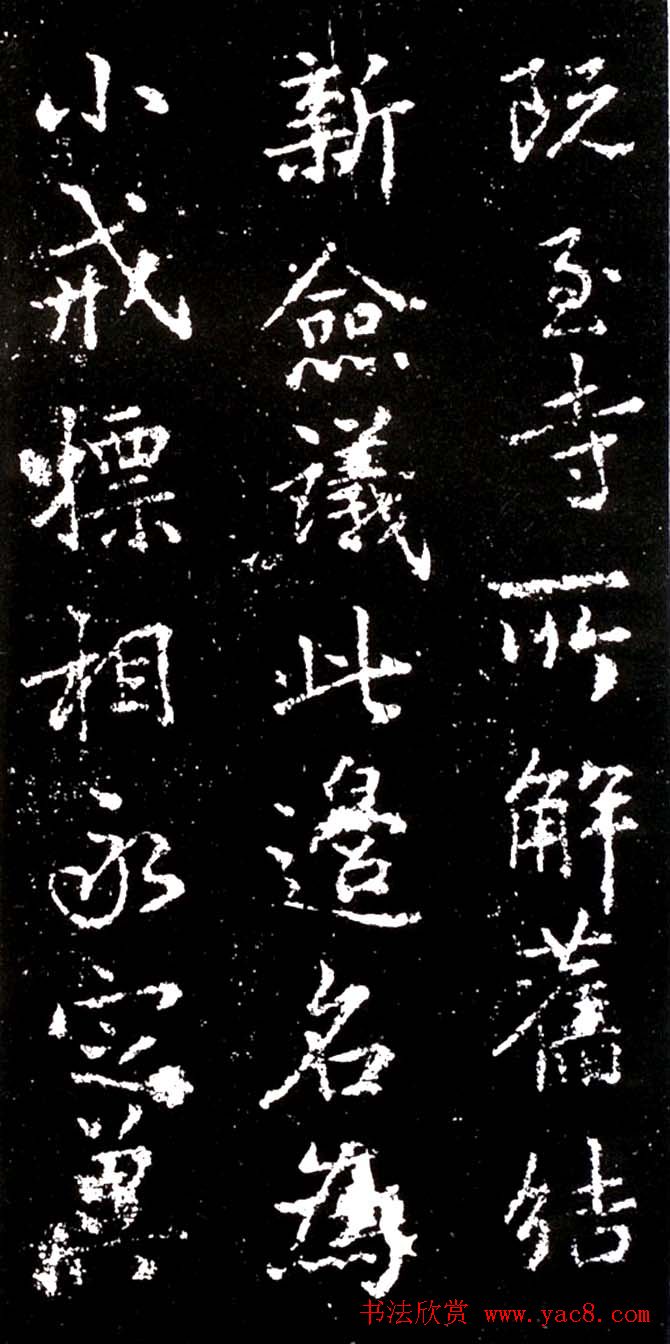 既至寺所解舊結
新僉議此邊名為
小戒標相永定
书法欣赏 www.yac8.com